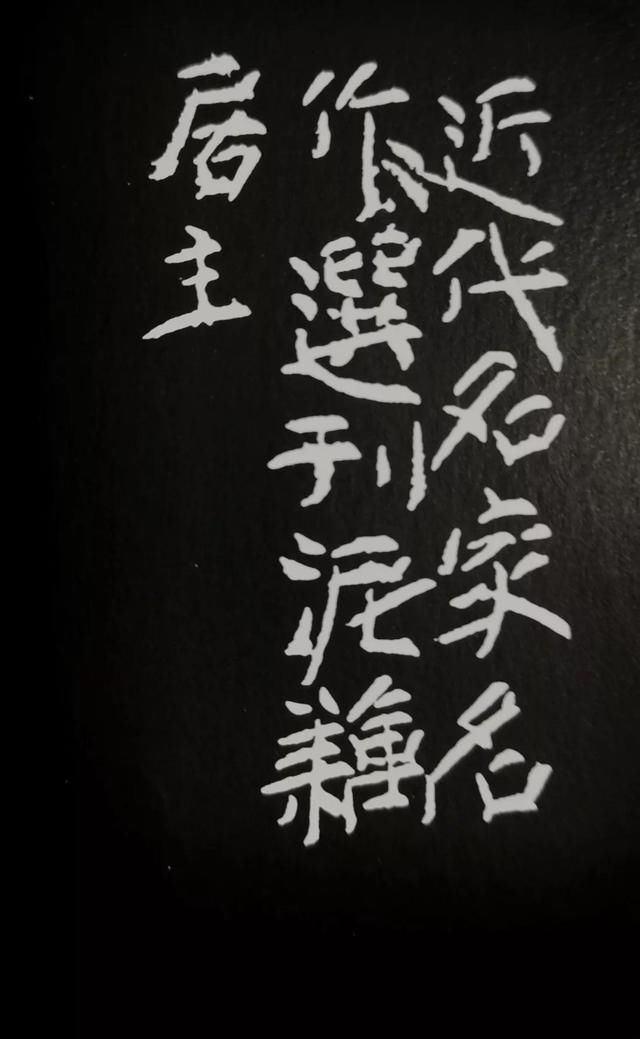 近代名家名
作選刊泥藕
居主